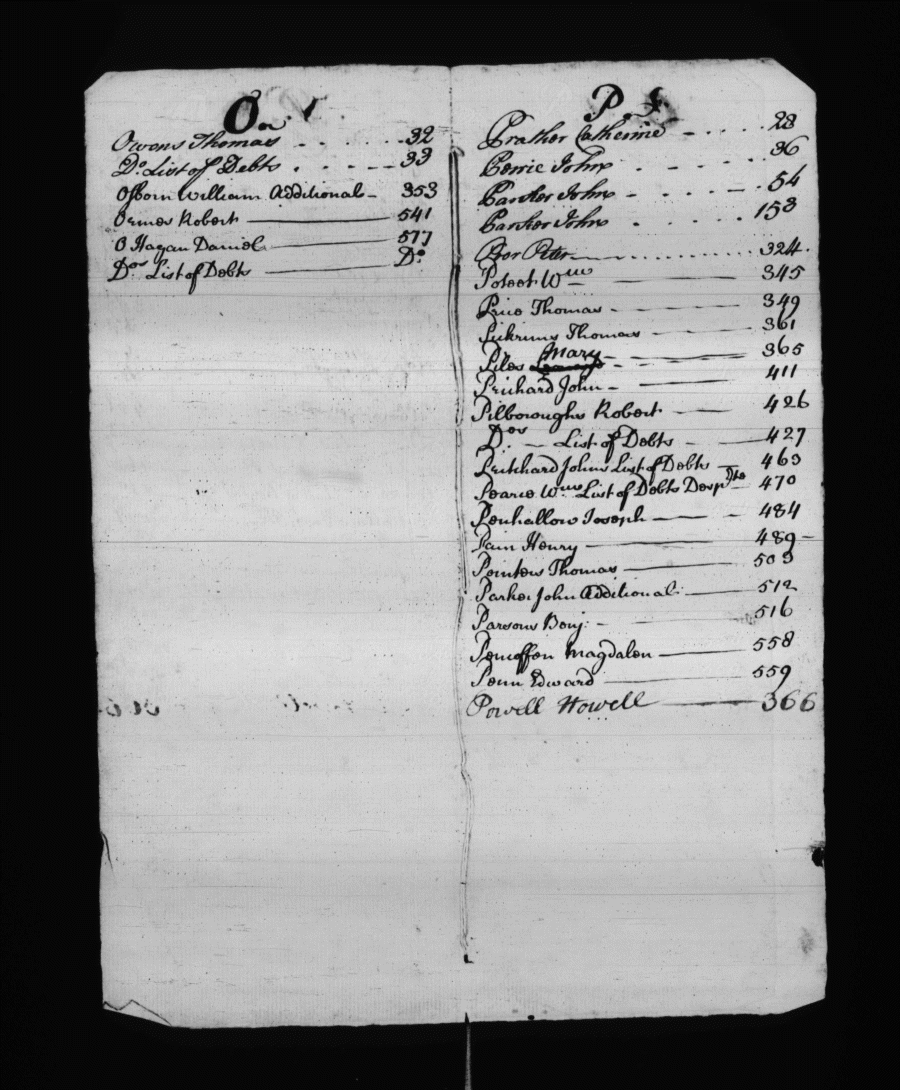 O
Owens Thomas 32
Do. List of Debts 33
Osborn William Additional 353
Ormes Robert 541
O Hagan Daniel 577
Dos. List of Debts Do
P
Prather Catherine 28
Perrie John 36
Parker John 54
Parker John 158
Peter 324
Poteet Wm 345
Price Thomas 349
Thomas 361
Mary
Piles 365
Prichard John 411
Pilboroughs Robert 426
Dos. List of Debts 427
Pritchard Johns List of Debts 463
Pearce Wms List of Debts Desp 470
Penhallow Joseph 484
Pain Henry 489
Thomas 503
Parker John Additional 512
Parsons Benj. 516
Magdalen 558
Penn Edward 559
Powell Howell 366